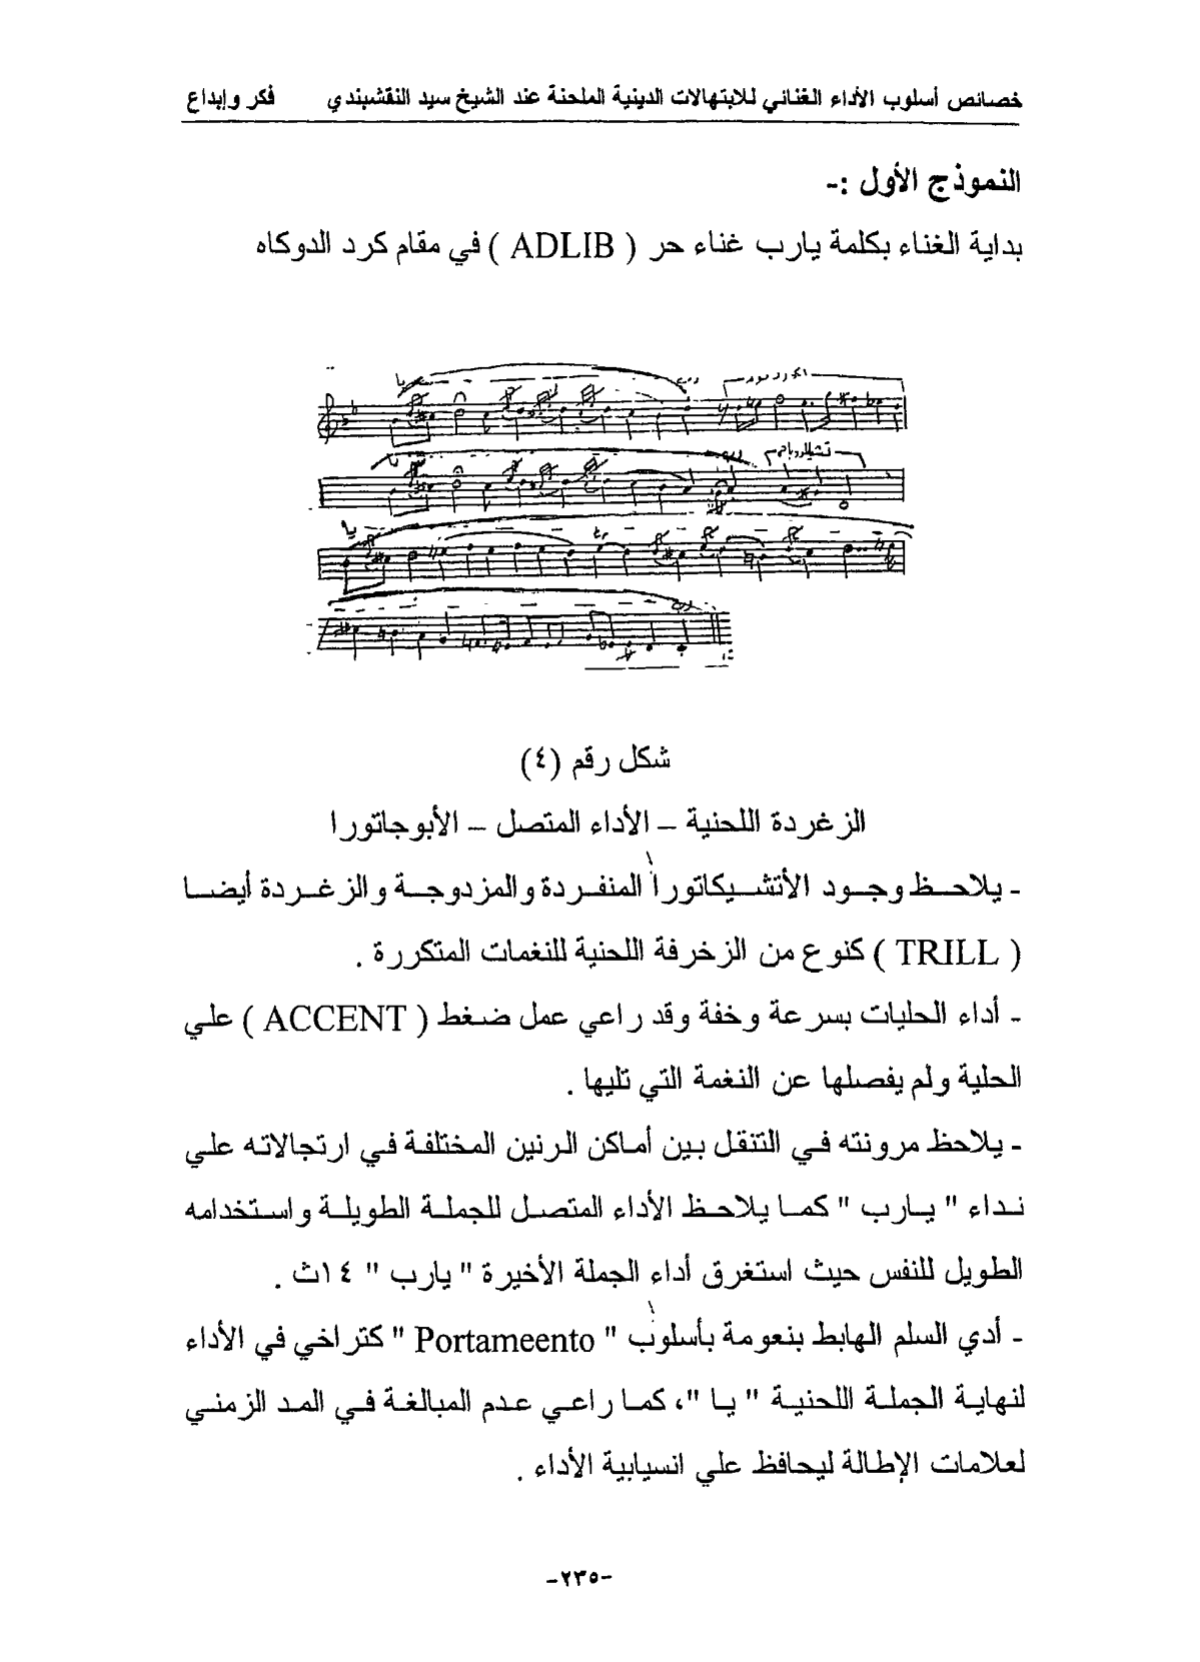 خصائص أسلوب الأداء الغنائي للابتهالات الدينية الملحنة عند الشيخ سيد النقشبندي فكر وإبداع
النموذج الأول :-
بداية الغناء بكلمة يارب غناء حر ( ADLIB ) في مقام كرد الدوكاه
يا رب
يا رب
يا رب
رب
شكل رقم (٤)
الزغردة اللحنية – الأداء المتصل – الأبوجاتورا
- يلاحظ وجود الأتشيكاتورا المنفردة والمزدوجة والزغردة أيضا
( TRILL ) كنوع من الزخرفة اللحنية للنغمات المتكررة .
- أداء الحليات بسرعة وخفة وقد راعي عمل ضغط ( ACCENT ) علي
الحلية ولم يفصلها عن النغمة التي تليها .
- يلاحظ مرونته في التنقل بين أماكن الرنين المختلفة في ارتجالاته علي
نداء " يارب " كما يلاحظ الأداء المتصل للجملة الطويلة واستخدامه
الطويل للنفس حيث استغرق أداء الجملة الأخيرة " يارب " ١٤ث .
- أدي السلم الهابط بنعومة بأسلوب " Portameento " كتراخي في الأداء
لنهاية الجملة اللحنية " يا "، كما راعي عدم المبالغة في المد الزمني
لعلامات الإطالة ليحافظ علي انسيابية الأداء .
-٢٣٥-